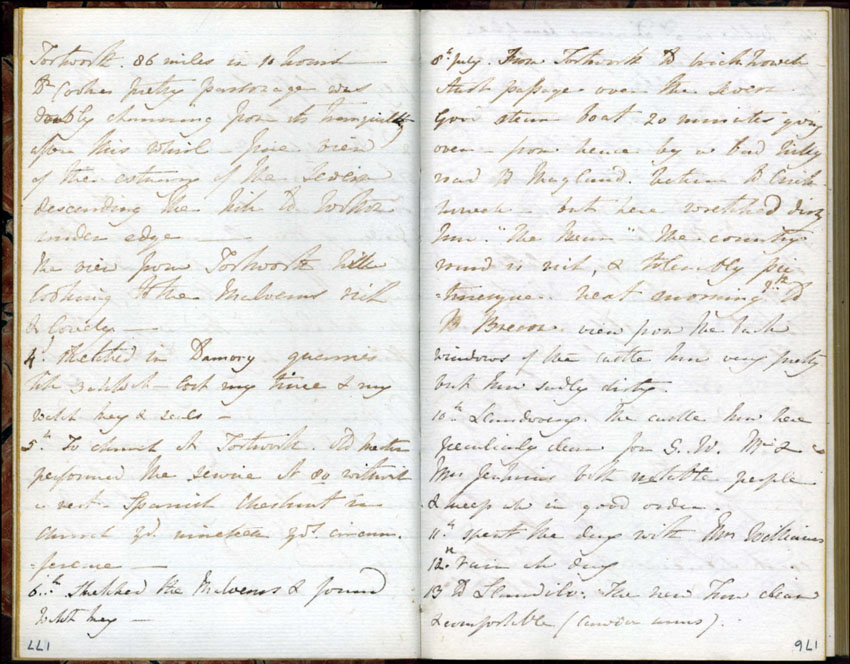 Tortworth. 86 miles in 10 hours
Dr Cooke pretty parsonage was
doubly charming from its tranquillity
after this whirl - fine view
of the estuary of the Severn
descending the hill to Wotton
under edge
the view from Tortworth hill
looking to the Malverns rich
& lovely -
4th sketched in Damory quarries
till - lost my time & my
watch key & seals -
5th To church at Tortworth. Old
performed the service at 80 without
a rest - Spanish Chestnut in
church yd. nineteen yds. circum-
-ference -
6th Sketched the Malverns & found
Watch key -
177
8th July. From Tortworth to Crickhowell
Aust passage over the Severn
Govt steam boat 20 minutes going
over - from hence by a bad hilly
road to Ragland. better to Crick
howell - but here wretched dirty
Inn. "The Bear" the country
round is rich, & tolerably pic
-turesque. next morning 9th to
to Brecon. view from the back
windows of the castle Inn very pretty
but Inn sadly dirty.
10th Llandovery. The castle Inn here
peculiarly clean for S. W. Mr &
Mrs Jenkins both notable people
& keep all in good order.
11th spent the day with Mrs Williams
12th rain all day
13 to Llandilo. The new Inn clean
& comfortable (Cawdor arms).
176